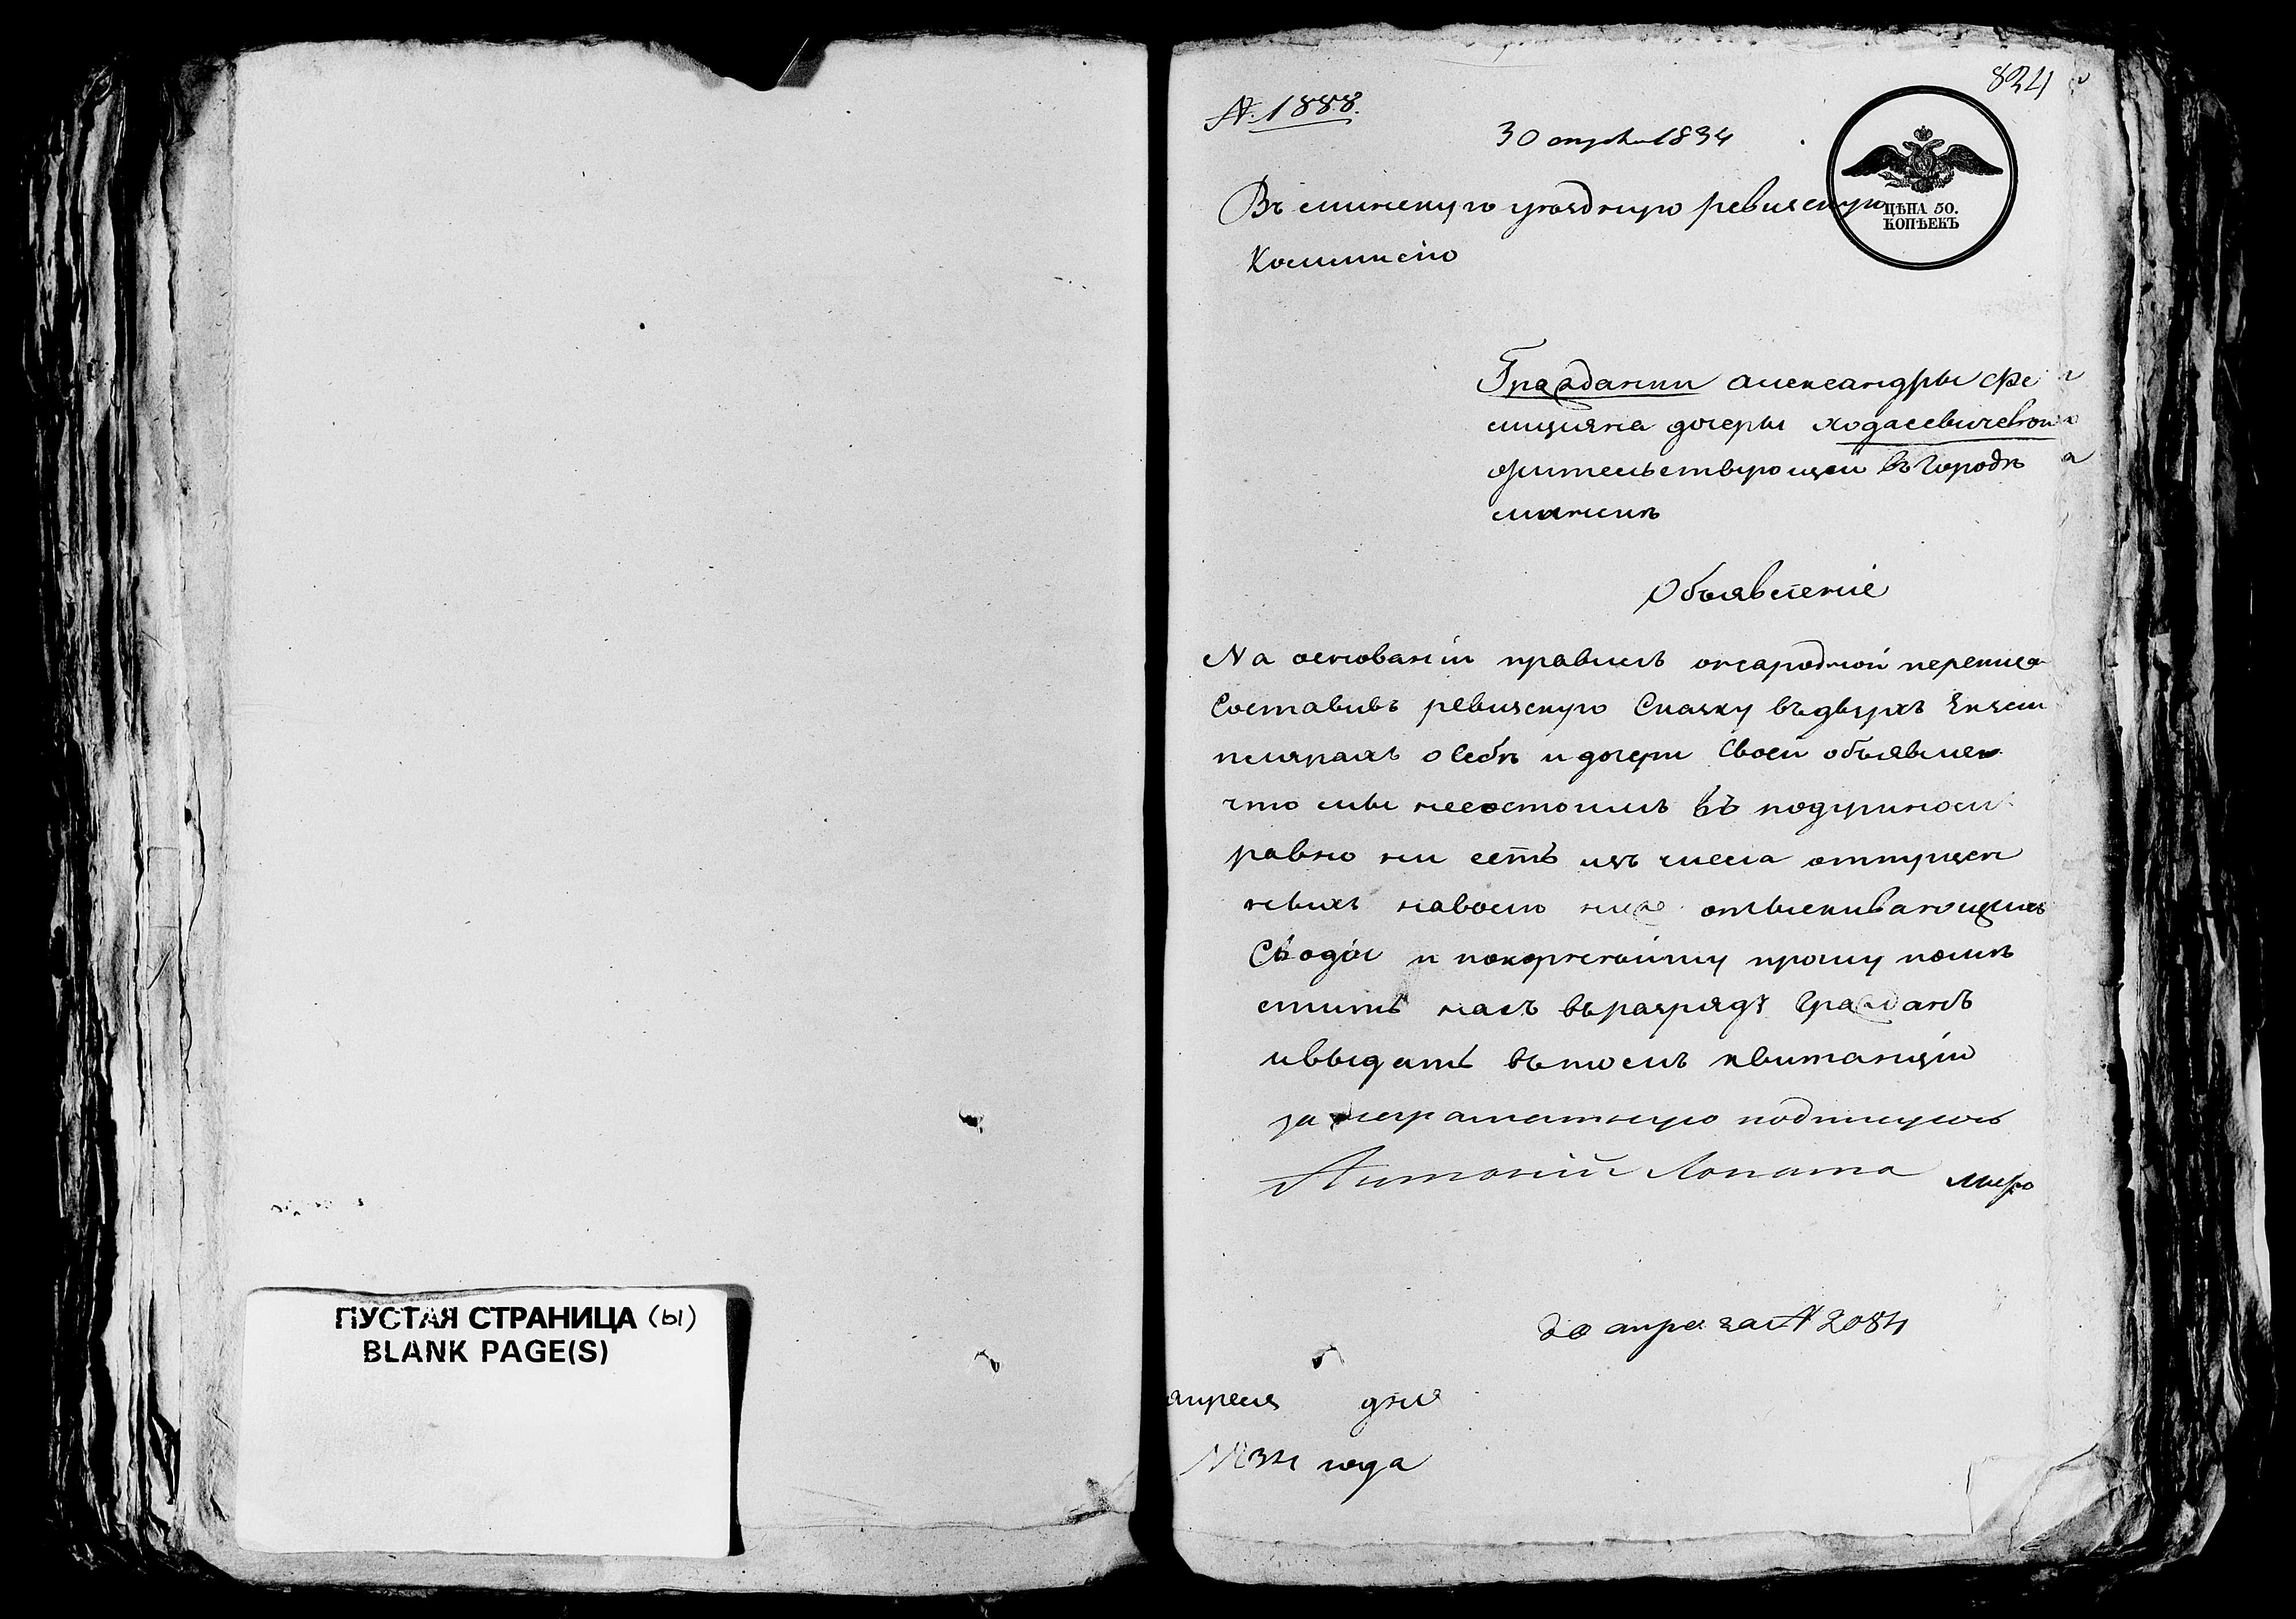 ПУСТАЯ СТРАНИЦА (ы)
BLANK PAGE(S)
824
№ 1888.
30 апреля 1834
ЦѢНА 50.
КОПѢЕКЪ
Въ минскую уѣздную ревизскую
Коммисію
Гражданки александры фе
лиціяна дочеры ходасевичевой
жительствующей въ городѣ
минскѣ
Объявленіе
На основаніи правилъ онародной переписи
Составивъ ревизскую Сказку въ двухъ Екзем
плярахъ о себѣ и дочери Своей объявляю
что мы несостоимъ въ подушномъ
равно ни есть изъ числа отпущен
ныхъ наволю отыскивающихъ
Свободы и покорнейшу прошу помѣ
стить насъ въ разрядъ Гражданъ
ивыдать въ томъ квитанцію
за неграматную подписуюсь
Антоній Лопата
30 апре за № 2084
апреля дня
1834 года